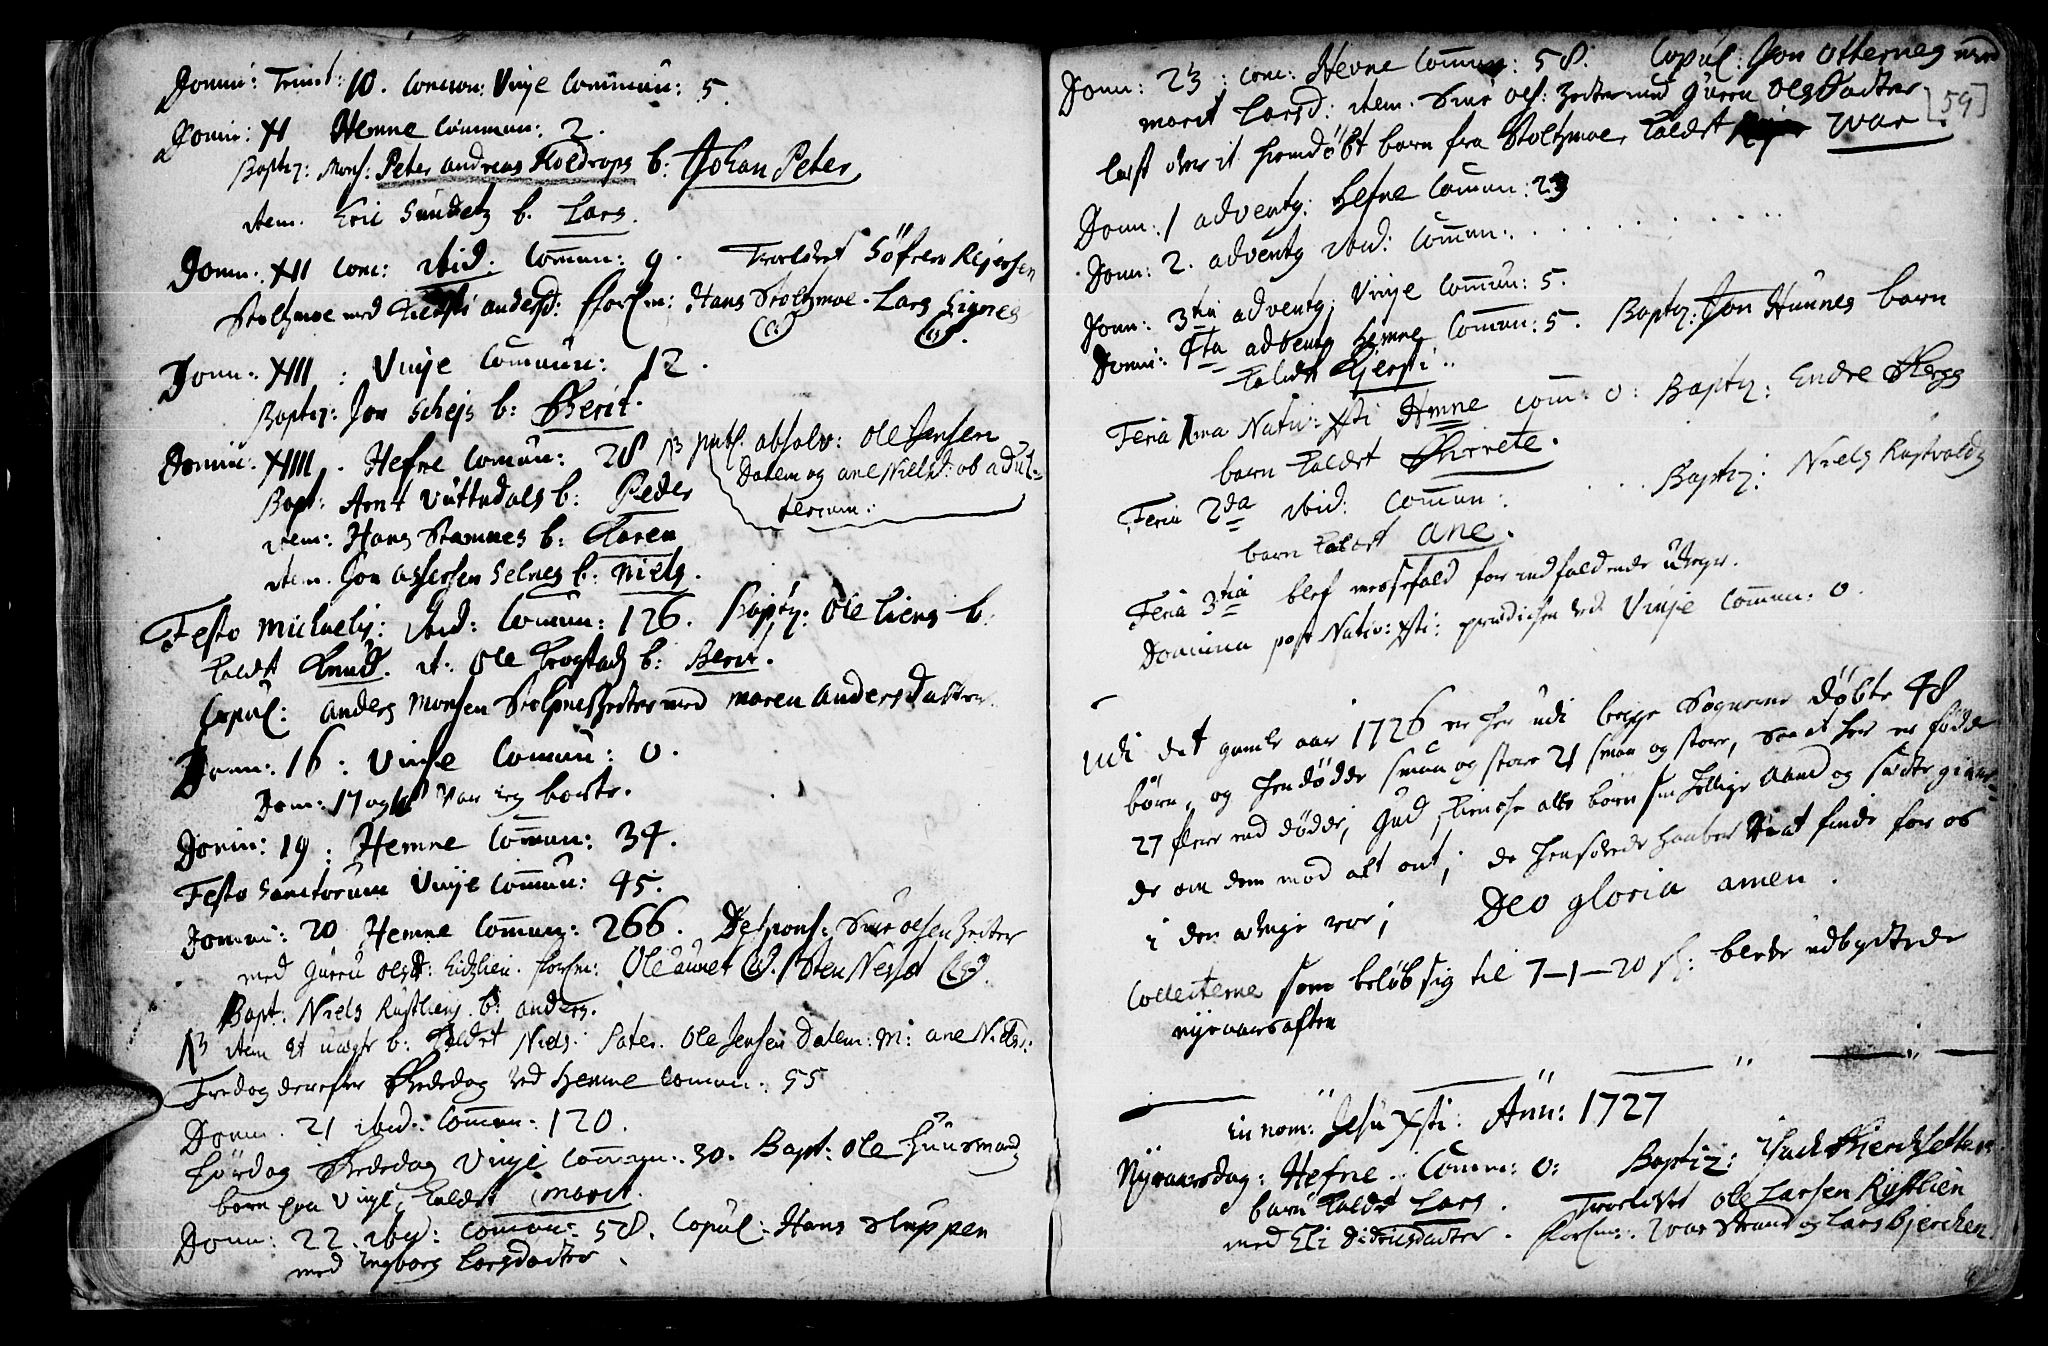 Domin: Trinit: 10. Concion: Vinje Commun: 5
Domin: XI Hemne Commun: 2.
Baptiz: Mons: Peter andreas Holdrops b: Johan Peter
item. Eric Sundets b. Lars.
Domin: XII Conc: ibid: Commun: 9. Trolovet Söfren Rejersen
Stoltzmoe med andersd: forlm: Hans Stoltzmoe. Lars
Domn: XIII : Vinje Commun: 12.
Baptiz: Jon Schejs b: Berit.
Domin: XIIII. Hefne Comun: 28 NB publ. absolv: Ole Jensen
Dalem og ane Nielsd: ob adul-
terium.
Bapt: Arnt Vuttudals b: Peder
item: Hans Stamnes b: Karen
item. Jon assersen Selnes b: Niels.
Festo Michaelis: ibid: Comun: 126. Baptiz: Ole Liens b.
kaldt Knud. it: Ole Krogstads b: Berit.
Copul: anders Monsen med maren andersdatter.
Domn: 16: Vinje Comun: 0.
Dom: 17 og 18 Var jeg borte.
Domin: 19: Hemne Comun: 34.
Festo Sanctorum Vinje Comun: 45.
Domin: 20 Hemne Comun: 266. Despons: Siur olsen Zeiter
med Gurru olsd: Eidslien. forlm: Ole aunet
Bapt. Niels Rustliens b: anders.
NB item Et uægte b: Kaldet Niels: Pater. Ole Jensen Dalem: M: ane Nielsd:
Fredag derefter Bededag ved Hemne Comun: 55
Domn. 21 ibid: Comun: 120.
Lördag Bededag Vinje Comun: 30. Bapt: Ole Huusmands
barn fra Vinje, Kaldet marit.
Domn: 22. ibid: Comun: 58. Copul: Hans Sluppen
med Ingborg Larsdatter.
Domn: 23: conc: Hevne Comun: 58. Copul: Jon Otternes med
marit Larsd: item. Siur ols: Zeiter med Gurru Olsdatter [59]
læst over it hiemdöbt barn fra Stoltzmoe kaldet Ivar
Domn: 1 adventg: Hefne Comun: 23
Domn: 2. adventg ibid: Comun: . . . . . . . . .
Domn: 3tia adventg: Vinje Comun: 5.
Domin: 4ta adventg Hemne Comun: 5. Baptiz: Jon Hunnes barn
kaldet Kjersti.
Feria 1ma Nativ: Xsti Hemne Com: 0: Baptiz: Endre Bergs
barn kaldet
Feria 2da ibid: Comun: . . . Baptiz: Niels Rustvolds
barn kaldet Ane.
Feria 3tia blef messefald for indfaldende Uvejr.
Dominica post Nativ: Xsti: prædichen ved Vinje Comun: 0.
Udi det gamle aar 1726 er her udi begge Sognerne döbte 48
börn, og hendödde smaa og store 21 smaa og store, saa at her er födde
27 flere end dödde, Gud skienche alle börn sin Hellige Aand og
de om dem mod alt ont; de hensovede haaber at finde for os
i den evige roe; Deo gloria amen.
Collecterne som belöb sig til 7-1-20 sk: blede udbyttede
nyeaarsaften
In nom: Jesu Xsti: Ann: 1727
Nyeaarsdag: Hefne. Comun: 0: Baptiz:
barn kaldt Lars. Trolovet Ole Larsen Rustlien
med Eli Didrichsdatter. forlm: Ivar Strand og Lars Bjerchen.